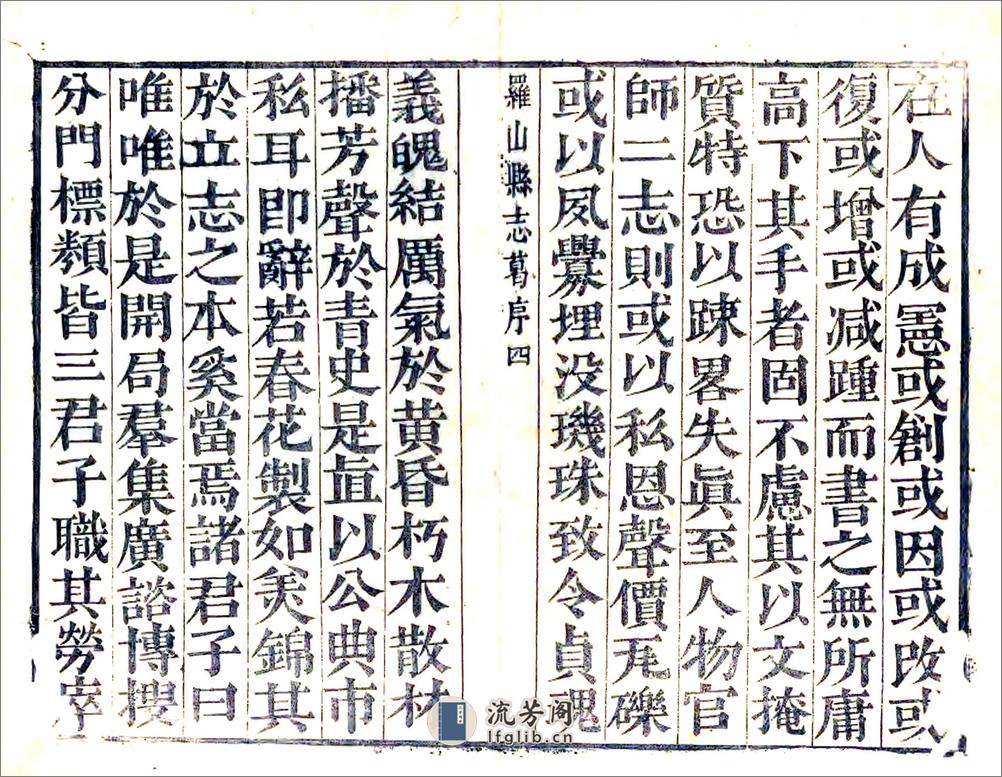 在人有成憲或創或因或改或
復或增或减踵而書之無所庸
高下其手者固不慮其以文掩
質特恐以踈畧失眞至人物官
師二志則或以私恩聲價瓦礫
或以夙釁埋没璣珠致令貞魂
羅山縣志葛序四
義魄結厲氣於黄昏朽木散材
播芳聲於青史是直以公典市
私耳即辭若春花製如美錦其
於立志之本奚當焉諸君子曰
唯唯於是開局羣集廣諮博搜
分門標類皆三君子職其勞宰
流芳阁
lfglib.cn